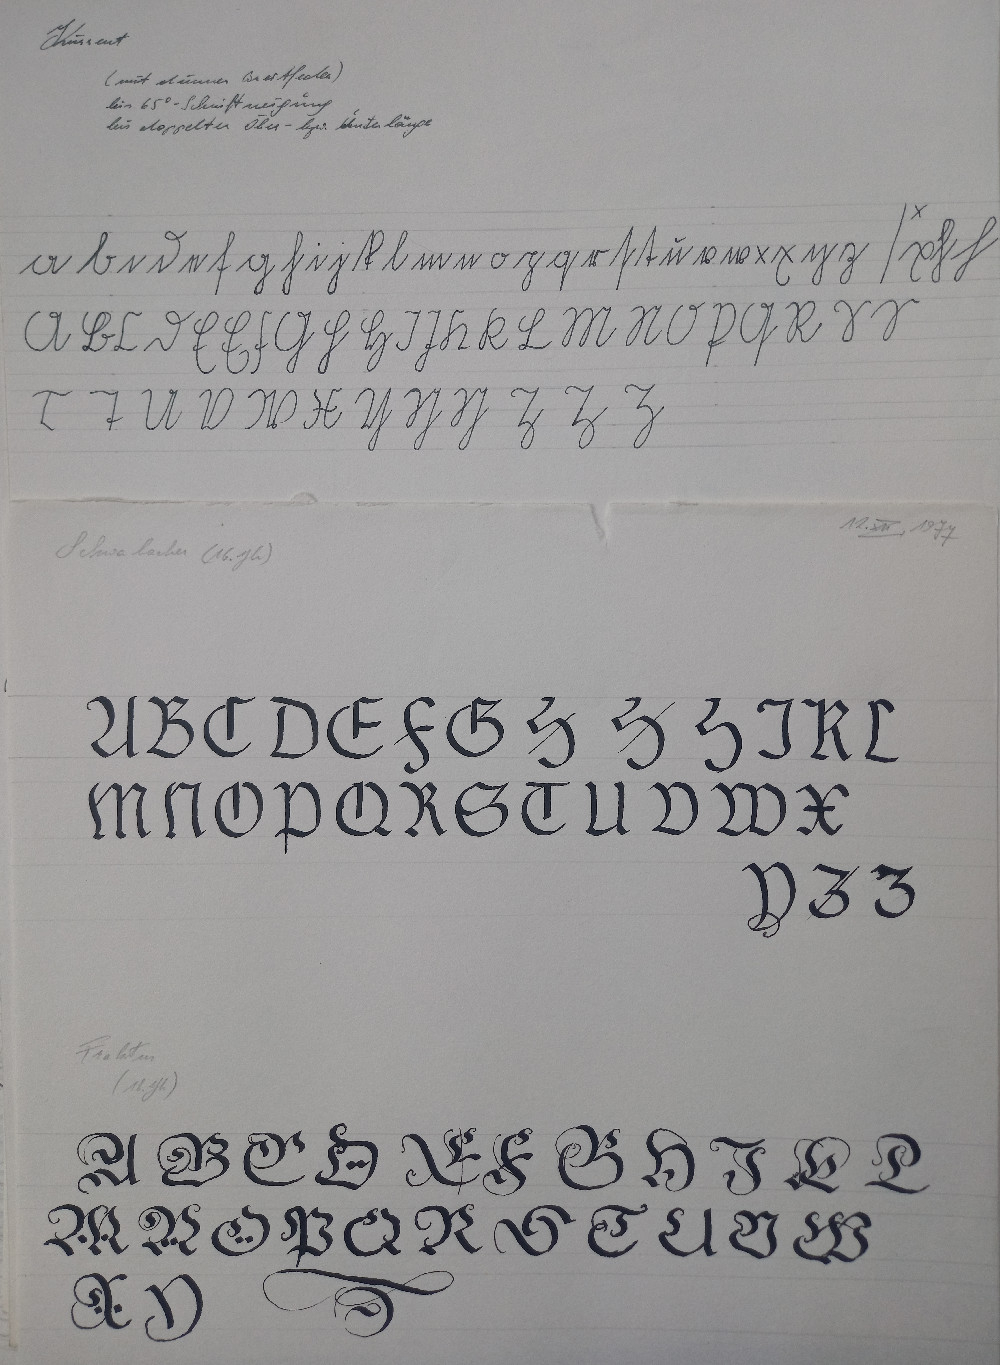 Kurrent
(mit dünner Breitfeder)
bis 65°-Schriftneigung
bis doppelter Ober- bzw. Unterlänge
a b c d e f g h i j k l m n o p q r s t u v w x x y z x
A B C D E E F G H H I J K K L M N O P Q R S S
T T U V W X Y Y Y Z Z Z
Schwabacher (16. Jh)
12. XII. 1977
A B C D E F G H H H I K L
M N O P Q R S T U V W X
Y Z Z
Fraktur
(16. Jh)
A B C D E F G H I K L
M N O P Q R S T U V W
X Y